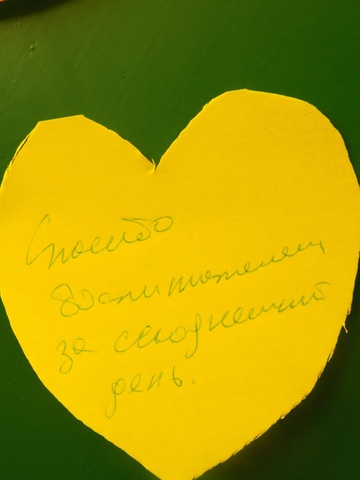 Спасибо
воспитателям
за сегодняшний
день.